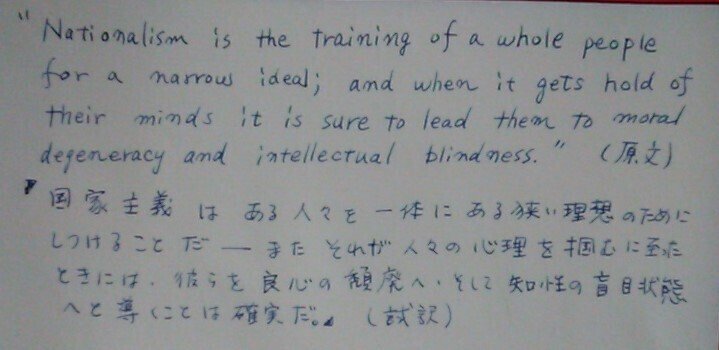 "Nationalism is the training of a whole people
for a narrow ideal; and when it gets hold of
their minds it is sure to lead them to moral
degeneracy and intellectual blindness." (原文)
「国家主義は ある人々を一体に ある狭い理想のために
しつけることだ — また それが人々の心理を掴むに至った
ときには、彼らを良心の頽廃へ、そして知性の盲目状態
へと導くことは確実だ。」 (試訳)